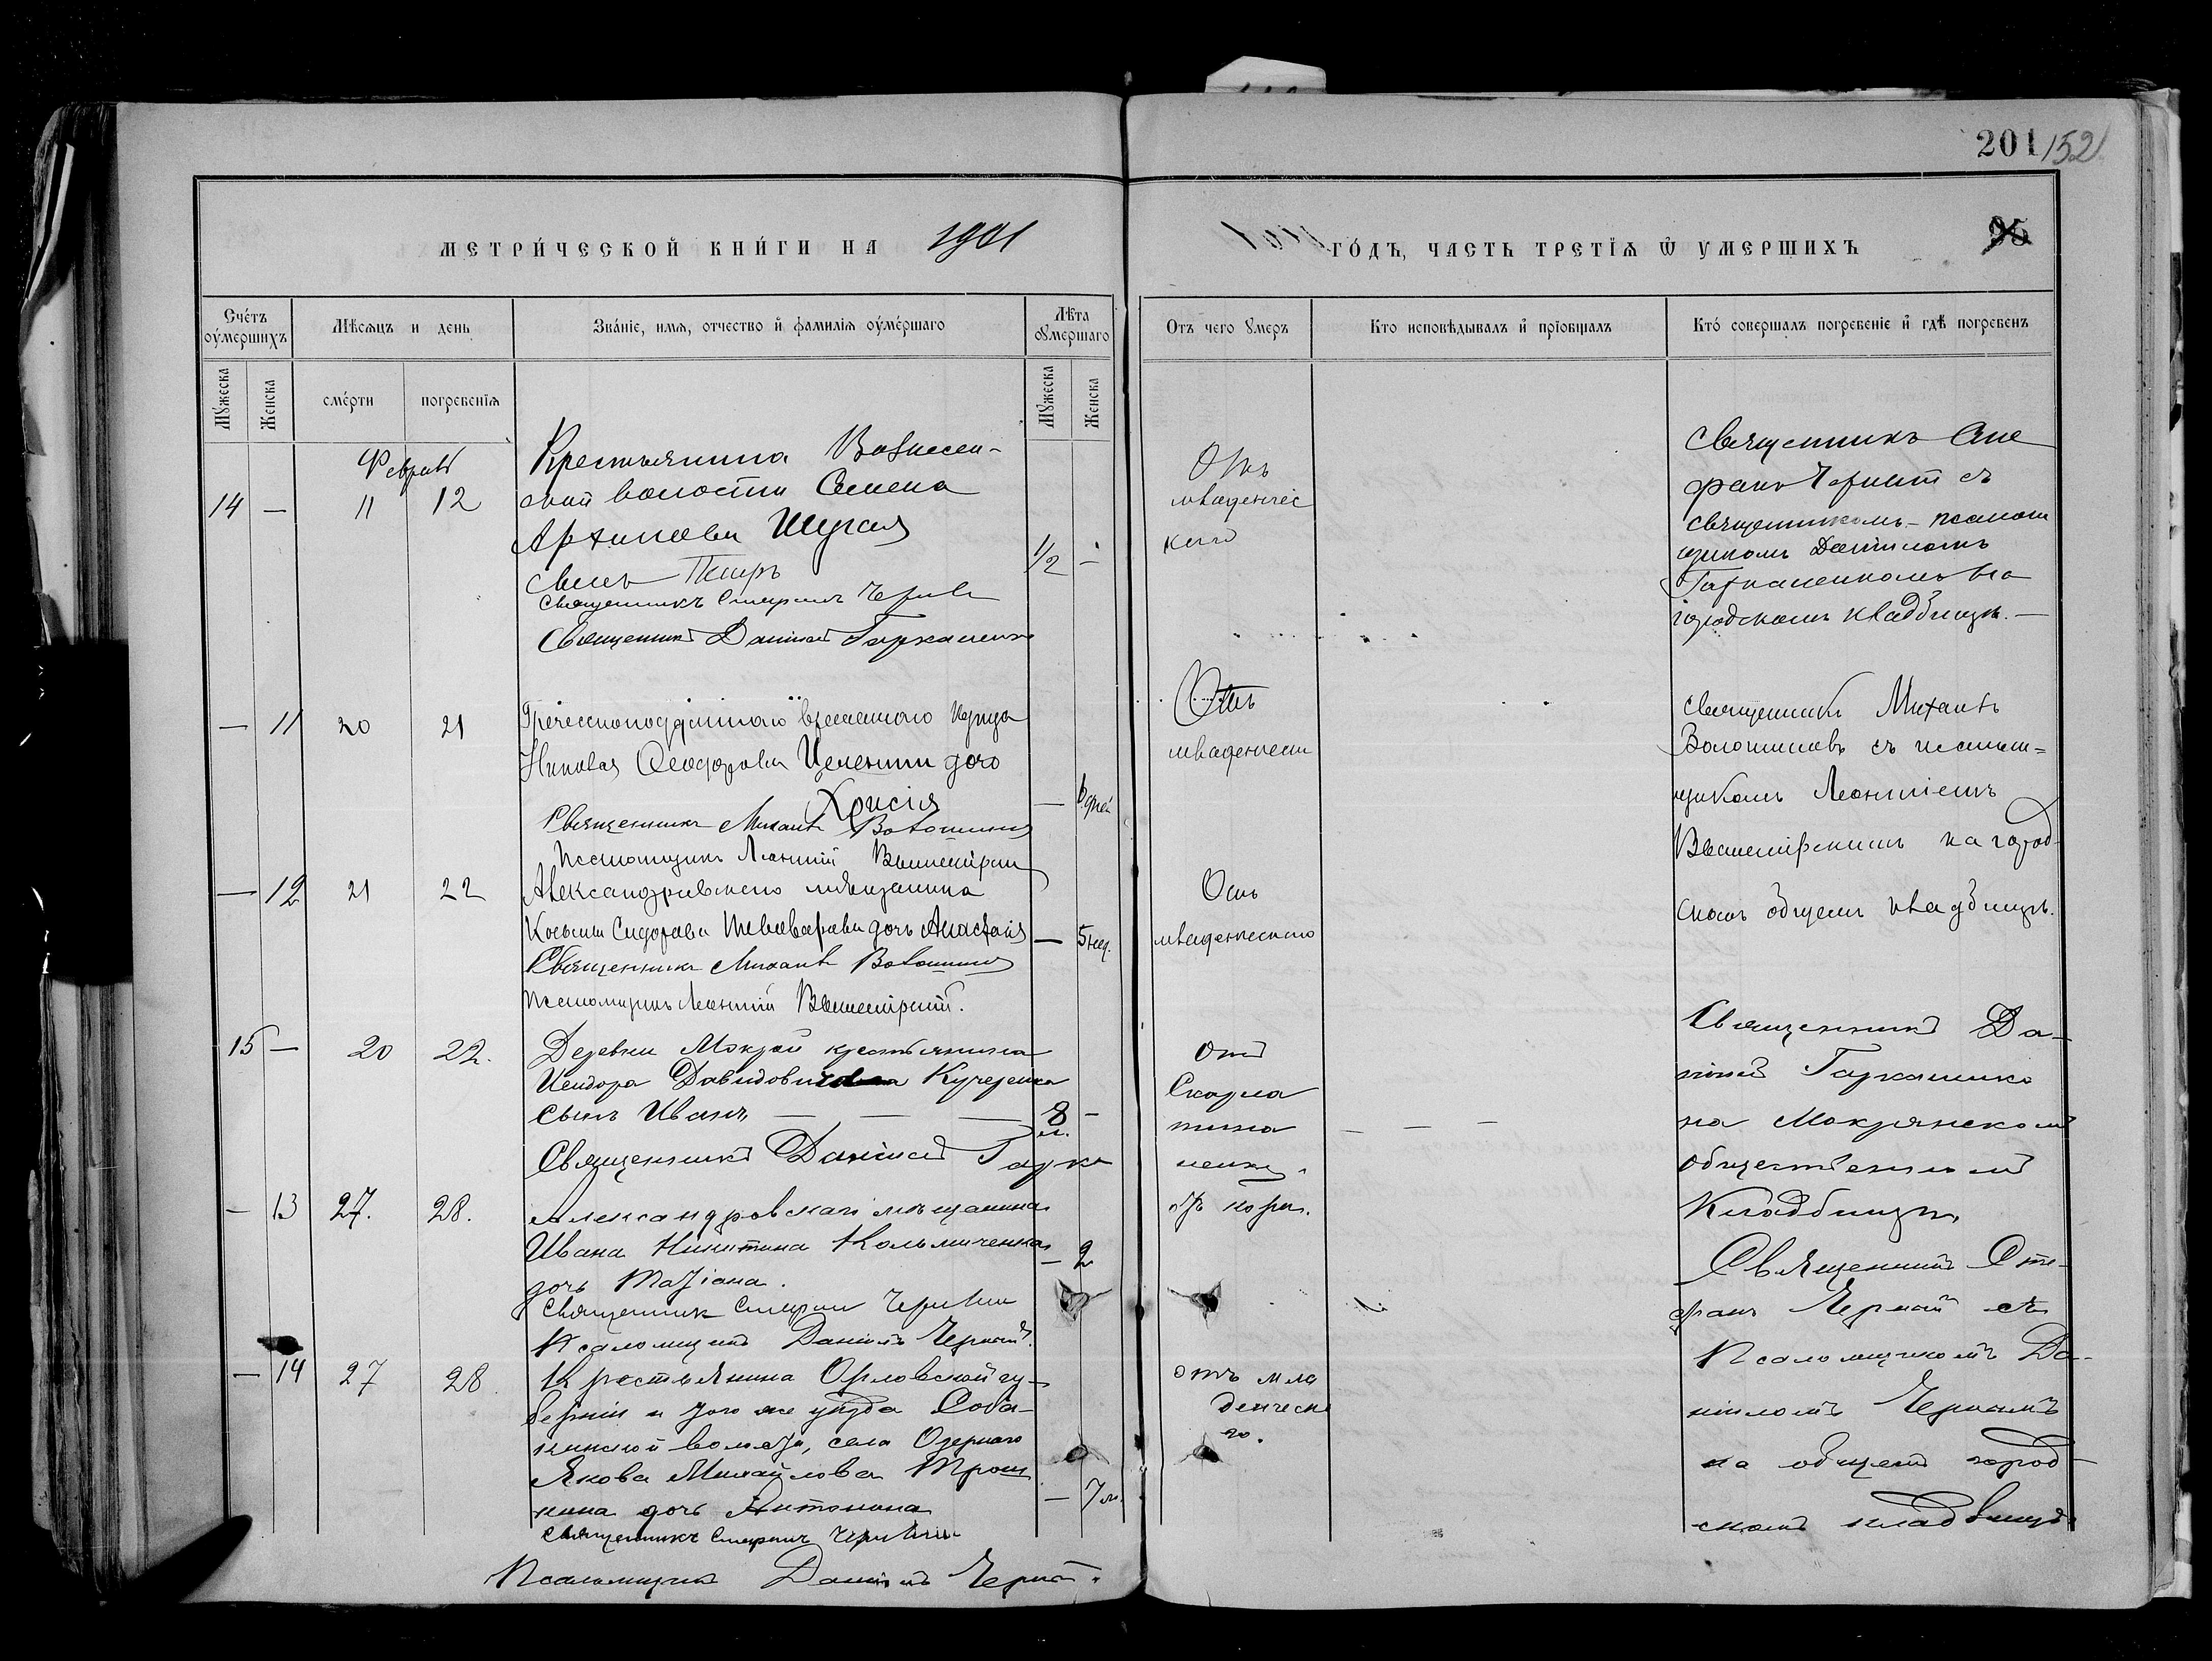 201 152
МЕТРИ́ЧЕСКОЙ КНИ́ГИ НА 1901
ГО́ДЪ, ЧАСТЬ ТРЕТІѦ Ѿ УМЕРШИХЪ
95
Сче́тъ оу́мершихъ
Мѣсяцъ и день
Зва́ніе, имя, отчество и фамилія оуме́ршаго
Лѣта оумершаго
Отъ чего умеръ
Кто исповѣдывалъ и пріобщалъ
Кто́ совершалъ погребеніе и гдѣ погребенъ
Мужеска
Женска
сме́рти
погребенія
Мужеска
Женска
Февраль
14 — 11 12
Крестьянина Вознесен-
ской волости Семена
Архипова Шугая
сынъ Петръ
1/2 —
Священникъ Стефанъ Черный
Священникъ Даніилъ Гаркашенко
Отъ
младенчес
каго
Священникъ Сте
фанъ Черный съ
священникомъ - псалом
щикомъ Даніиломъ
Гаркашенкомъ на
городскомъ кладбищѣ. —
— 11 20 21
Греческоподданнаго временнаго купца
Николая Ѳеодорова дочь
Хрисія
— 6 дней
Священникъ Михаилъ Волошиновъ
Псаломщикъ Леонтій Вышемірскій
Отъ
младенческ
Священникъ Михаилъ
Волошиновъ съ псалом=
щикомъ Леонтіемъ
Вышемірскимъ на город-
скомъ общемъ кладбищѣ.
— 12 21 22
Александровскаго мѣщанина
Косьмы Сидорова дочь Анастасія
— 5 нед.
Священникъ Михаилъ Волошиновъ
Псаломщикъ Леонтій Вышемірскій.
Отъ
младенческаго
15 — 20 22.
Деревни Мокрой крестьянина
Исидора Давидовича Кучеренка
сынъ Иванъ — — —
8 м. —
Священникъ Даніилъ Гарка
шенко.
Отъ
Скарла
тина
— — —
Священникъ Да-
ніилъ Гаркашенко
на Мокрянскомъ
общественномъ
Кладбищѣ.
— 13 27. 28.
Александровскаго мѣщанина
Ивана Никитина Кольмиченка
дочь Татіана.
— 2
Священникъ Стефанъ Черный
Псаломщикъ Даніилъ Черный.
отъ кори.
Священникъ Сте-
фанъ Черный съ
Псаломщикомъ Да-
ніиломъ Чернымъ
на общемъ город-
скомъ кладбищѣ
— 14 27 28
Крестьянина Орловской гу-
берніи и того же уѣзда Соба-
кинской волости, села Озернаго
Якова Михайлова Трош
кина дочь Антонина
— 7 м.
Священникъ Стефанъ Черный
Псаломщикъ Даніилъ Черный.
отъ мла
денческа
го.